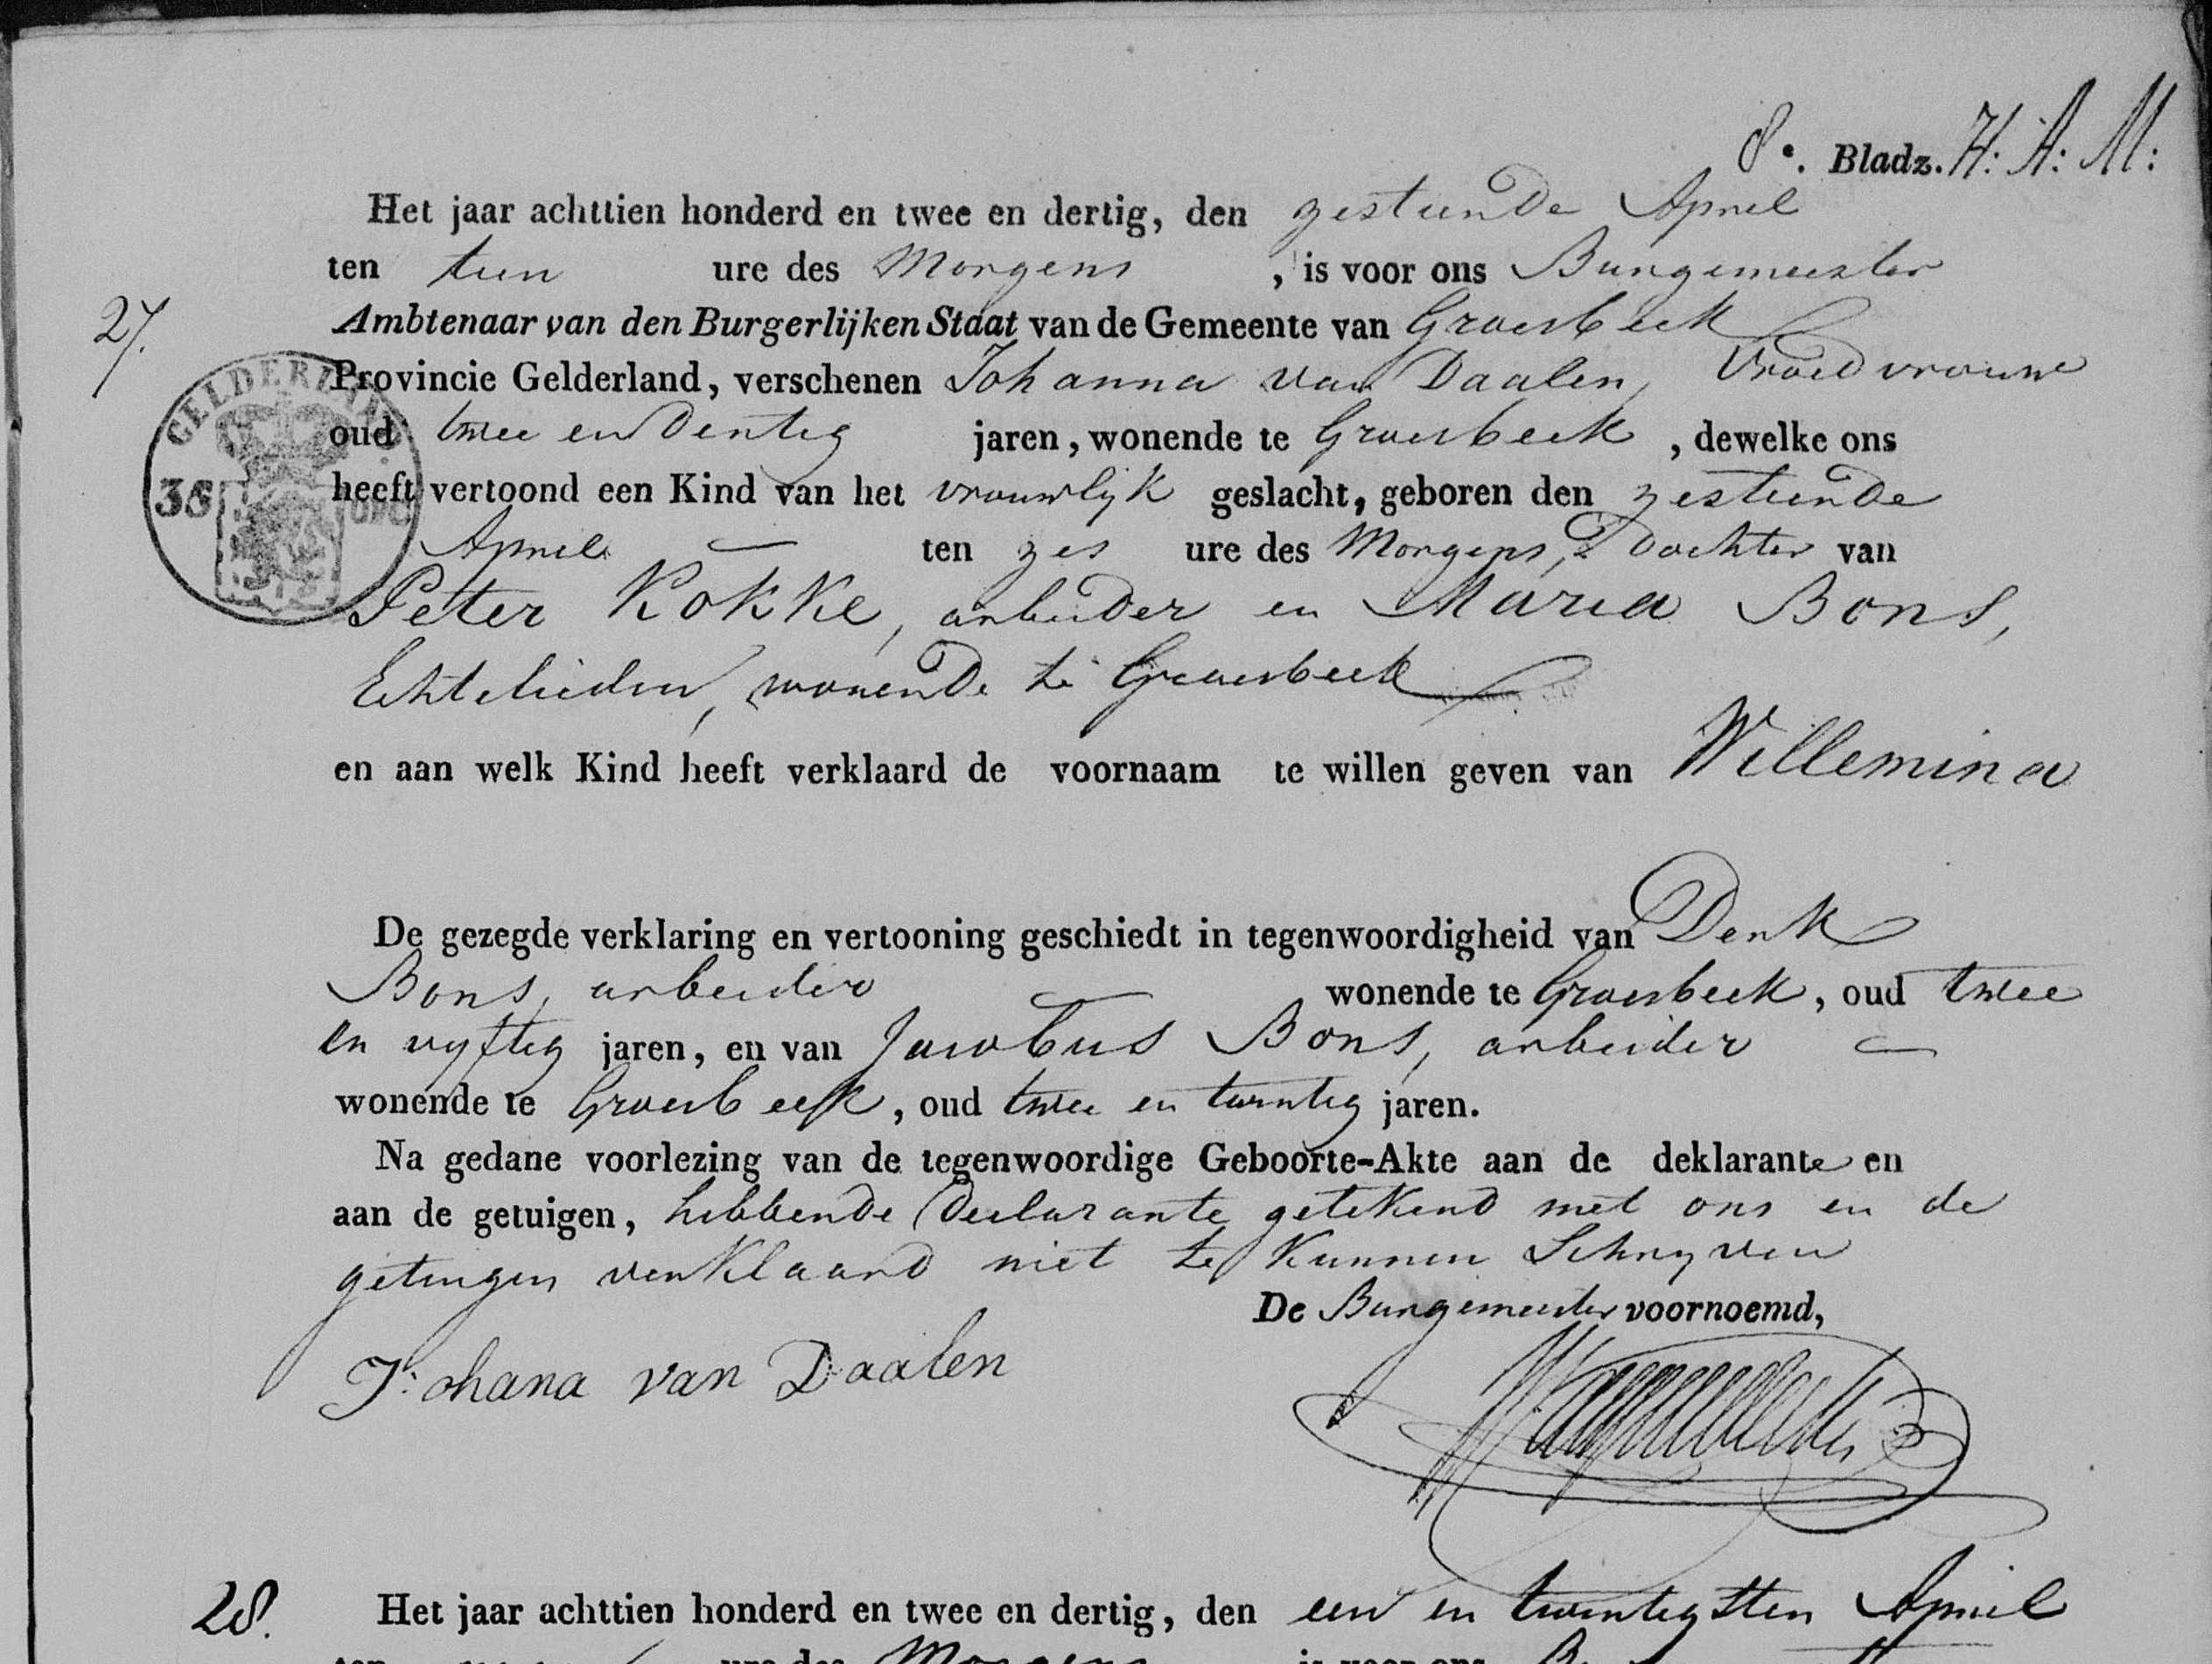 8e. Bladz. H: A: M:
Het jaar achttien honderd en twee en dertig, den zestiende April
ten tien ure des Morgens, is voor ons Burgemeester
27.
Ambtenaar van den Burgerlijken Staat van de Gemeente van Groesbeek
Provincie Gelderland, verschenen Johanna van Daalen, Vroedvrouw
oud twee en dertig jaren, wonende te Groesbeek, dewelke ons
heeft vertoond een Kind van het vrouwlijk geslacht, geboren den zestiende
April — ten zes ure des Morgens, Dochter van
Peter Kokke, arbeider en Maria Bons,
Echtelieden, wonende te Groesbeek
en aan welk Kind heeft verklaard de voornaam te willen geven van Willemina
De gezegde verklaring en vertooning geschiedt in tegenwoordigheid van Derk
Bons, arbeider wonende te Groesbeek, oud twee
en vyftig jaren, en van Jacobus Bons, arbeider —
wonende te Groesbeek, oud twee en twintig jaren.
Na gedane voorlezing van de tegenwoordige Geboorte-Akte aan de deklarante en
aan de getuigen, hebbende Declarante getekend met ons en de
getuigen verklaard niet te kunnen Schryven
De Burgemeester voornoemd,
J:ohana van Daalen
28. Het jaar achttien honderd en twee en dertig, den een en twintigsten April
GELDERLAND